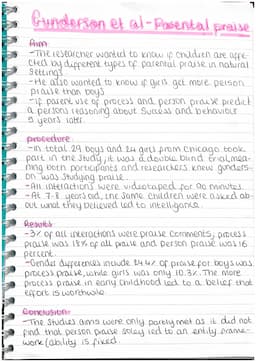 Gunderson et al - Parental praise
Aim
-The researcher wanted to know if children are affe-
cted by different types of parental praise in natural
settings
-He also wanted to know if girls get more person
praise than boys
-if parent use of process and person praise predict
a persons reasoning about success and behaviour
5 years later.
procedure
-In total 29 boys and 24 girls from Chicago took
part in the study, it was a double blind trial, mea-
ning both participants and researchers knew gunders-
on was studying praise.
-All interactions were videotaped for 90 minutes.
-At 7-8 years old, the same children were asked ab-
out what they believed led to intelligence.
Results
-3% of all interactions were praise comments, process
praise was 18% of all praise and person praise was 16
percent.
-Gender differences include 24.4% of praise for boys was
process praise, while girls was only 10.3%. The more
process praise in early childhood led to a belief that
effort is worthwhile
Conclusion
-The studies aims were only partly met as it did not
find that person praise solely led to an entity frame-
work (ability is fixed.